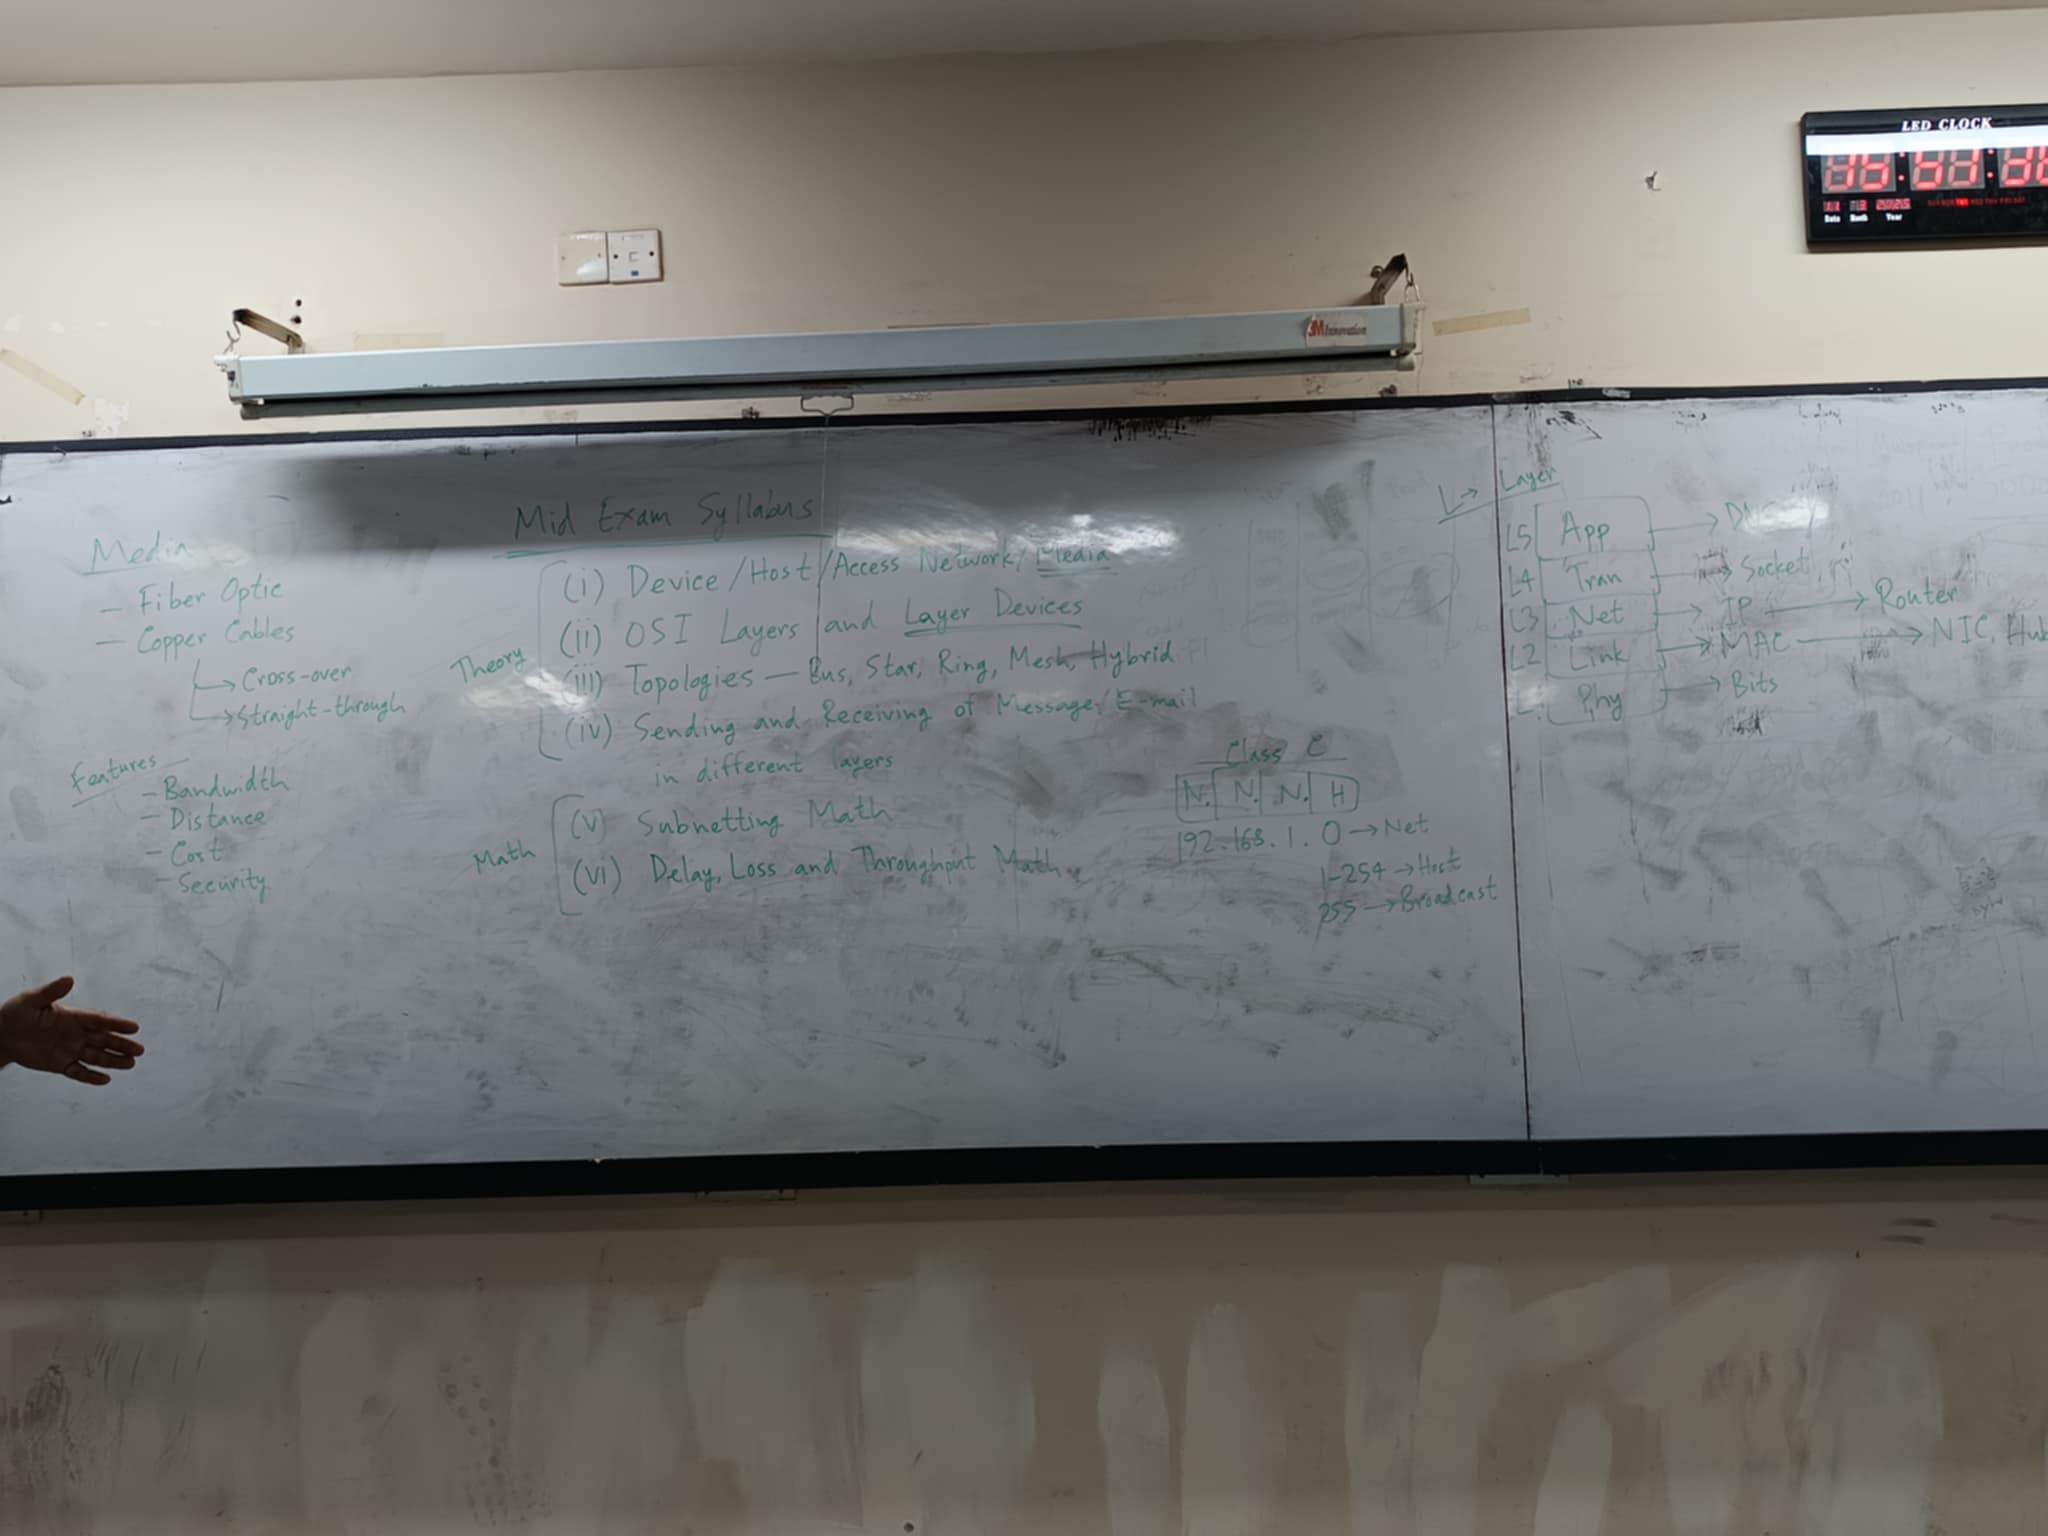 LED CLOCK
Date Month Year
3M Innovation
Media
– Fiber Optic
– Copper Cables
→ Cross-over
→ Straight-through
Features
– Bandwidth
– Distance
– Cost
– Security
Mid Exam Syllabus
Theory
(i) Device/Host/Access Network/Media
(ii) OSI Layers and Layer Devices
(iii) Topologies – Bus, Star, Ring, Mesh, Hybrid
(iv) Sending and Receiving of Message/E-mail
in different layers
Math
(v) Subnetting Math
(vi) Delay, Loss and Throughput Math
Class C
N. N. N. H
192.168.1.0 → Net
1-254 → Host
255 → Broadcast
L → Layer
L5 App →
L4 Tran → Socket
L3 Net → IP → Router
L2 Link → MAC → NIC, Hub
Phy → Bits